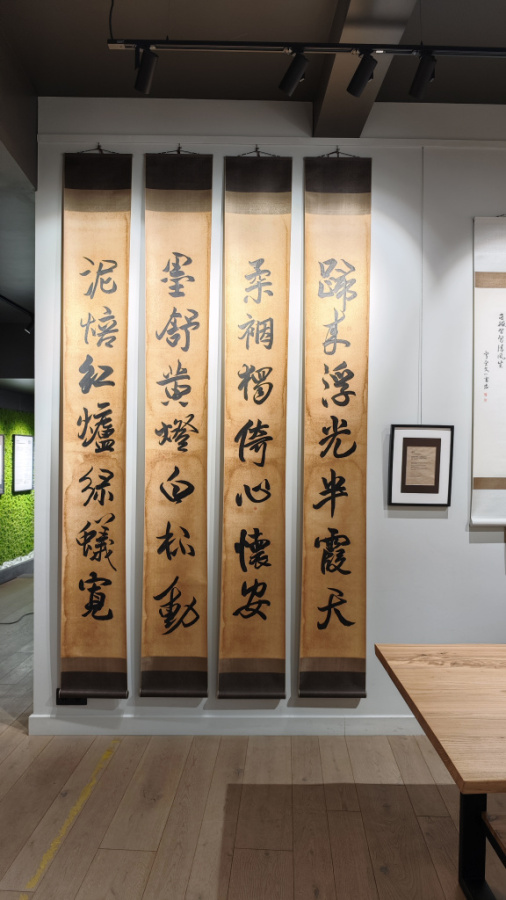 歸来浮光半霞天
柔裀獨倚心懷安
墨舒黄燈白松動
泥焙紅爐緑蟻寬